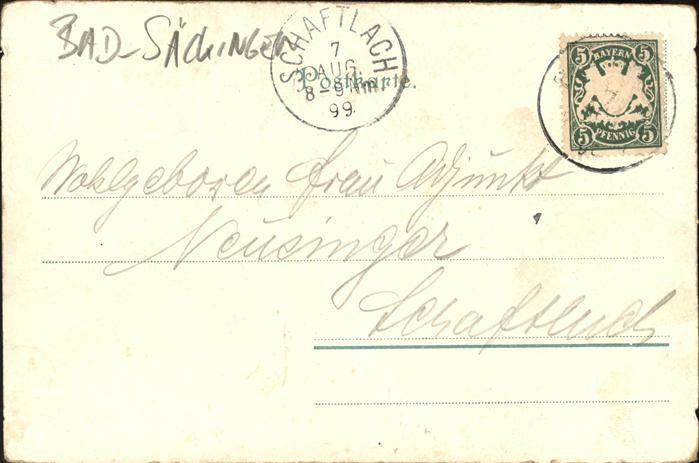 BAD-SÄCKINGEN
SCHAFTLACH
7
AUG
8-9 Nm
99
Postkarte.
5 BAYERN 5
5 PFENNIG 5
Wohlgeboren Frau Adjunkt
Neusinger
Schaftlach